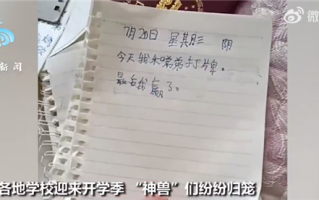 新闻
微
7月20日 星期三 阴
今天我和弟弟打牌。
最后我赢了。
各地学校迎来开学季 “神兽”们纷纷归笼